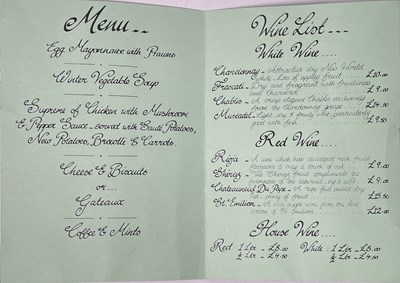 Menu...
Egg Mayonnaise with Prawns
Winter Vegetable Soup
Supreme of Chicken with Mushroom
& Pepper Sauce - served with Saute Potatoes,
New Potatoes, Brocolli & Carrots.
Cheese & Biscuits
or...
Gateaux
Coffee & Mints
Wine List...
White Wine....
Chardonnay - Attractive dry New World
white. Lots of apply fruit £10.00
Frascati - Dry and fragrant with fruitiness
and Character £9.00
Chablis - A crisp elegant Chablis exclusively
from the Chardonnay grape £14.50
Muscadet - Light, dry & fruity Wine, particularly
good with fish £9.50
Red Wine....
Rioja - A wine which has so much rich fruit
£9.00
Shiraz - The Shiraz fruit compliments the
£9.00
Chateauneuf Du Pape - A ripe full bodied dry
red - plenty of fruit £15.50
St. Emilion - A
of St. Emilion £12.00
House Wine....
Red 1 Ltr - £8.00 White : 1 Ltr - £8.00
½ Ltr - £4.50 ½ Ltr - £4.50